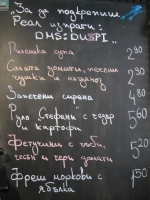 "За да подкрепиш
Реал, изпрати:
DMS: DUSPI"
Пилешка супа 2.90
Салата домати, печени
чушки и патладжан 2.90
Запечени сирена 4.80
Руло „Стефани" с чадър
и картофи 5.60
Фетучини с гъби,
чесън и чери домати 5.20
Фреш моркови с
ябълка 1.50